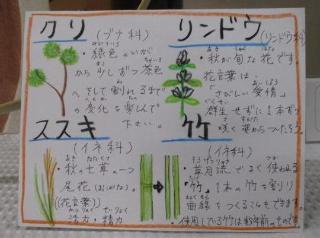 クリ
(ブナ科)
・緑色のいが
から少しずつ茶色
へ
そして割れるまで
の変化を楽しんで
下さい。
リンドウ(リンドウ科)
・秋が旬な花です
花言葉は
「さびしい愛情」
群生せずに1本ずつ
咲く姿からついたそう。
ススキ
(イネ科)
・秋の七草の一つ
尾花(おばな)。
(花言葉)
活力・精力
竹
(イネ科)
・草月流でよく使われる
・竹。1本の竹を割り
曲線をつくることもできます。
・使用している竹は約
年前のものです